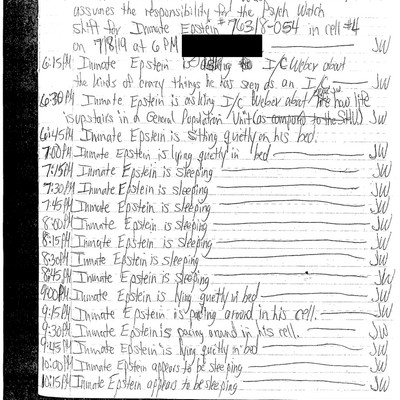 assumes the responsibility for the Psych Watch
shift for Inmate Epstein #76318-054 in cell #4
on 7/8/19 at 6 PM JW
6:15PM Inmate Epstein is I/C Weber about
the kinds of crazy things he has seen as an I/C JW
6:30PM Inmate Epstein is asking I/C Weber about how life
is upstairs in a General Population Unit (as compared to the SHU) JW
6:45PM Inmate Epstein is sitting quietly on his bed. JW
7:00PM Inmate Epstein is lying quietly in bed JW
7:15PM Inmate Epstein is sleeping JW
7:30PM Inmate Epstein is sleeping JW
7:45PM Inmate Epstein is sleeping JW
8:00PM Inmate Epstein is sleeping JW
8:15PM Inmate Epstein is sleeping JW
8:30PM Inmate Epstein is sleeping JW
8:45PM Inmate Epstein is sleeping JW
9:00PM Inmate Epstein is lying quietly in bed JW
9:15PM Inmate Epstein is pacing around in his cell. JW
9:30PM Inmate Epstein is pacing around in his cell. JW
9:45PM Inmate Epstein is lying quietly in bed JW
10:00PM Inmate Epstein appears to be sleeping JW
10:15PM Inmate Epstein appears to be sleeping JW